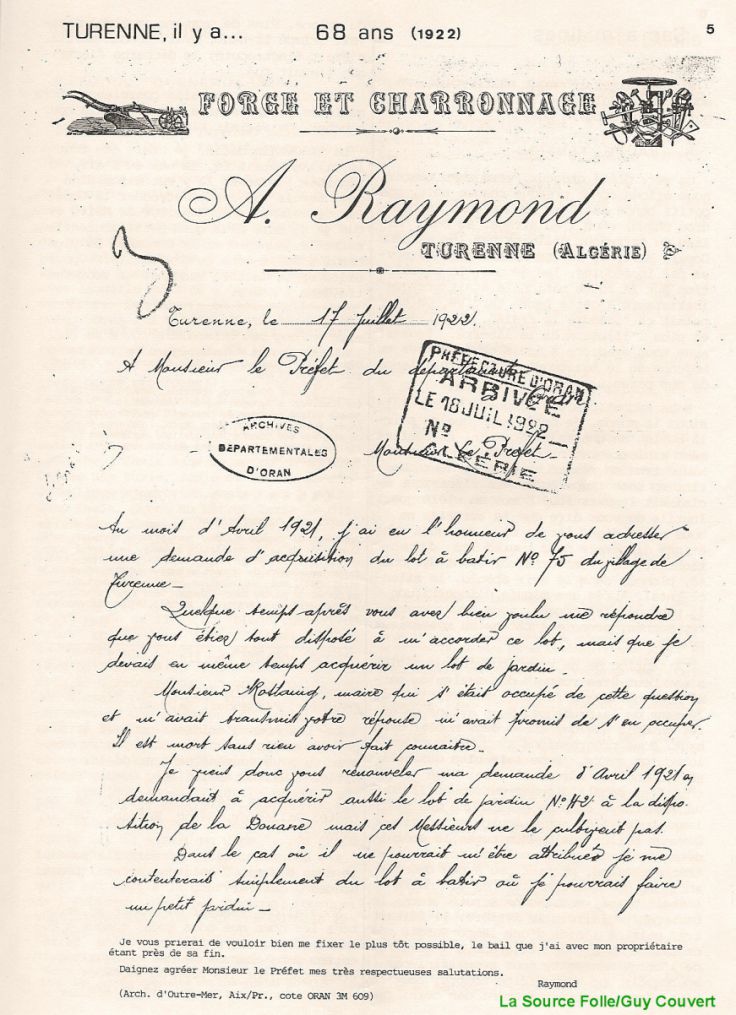 TURENNE, il y a... 68 ans (1922) 5
FORGE ET CHARRONNAGE
A. Raymond
TURENNE (ALGÉRIE)
Turenne, le 17 Juillet 1922.
A Monsieur le Préfet du département
d'Oran
PRÉFECTURE D'ORAN
ARRIVÉE
LE 18 JUIL 1922
N°
ALGÉRIE
ARCHIVES
DEPARTEMENTALES
D'ORAN
Monsieur Le Préfet
Au mois d'Avril 1921, j'ai eu l'honneur de vous adresser
une demande d'acquisition du lot à batir N° 75 du village de
Turenne_
Quelque temps après vous avez bien voulu me répondre
que vous étiez tout disposé à m'accorder ce lot, mais que je
devais en même temps acquérir un lot de jardin.
Monsieur Rostaing, maire qui s'était occupé de cette question
et m'avait transmis votre réponse m'avait promis de s'en occuper.
Il est mort sans rien avoir fait connaitre_
Je viens donc vous renouveler ma demande d'Avril 1921 en
demandant à acquérir aussi le lot de jardin N° 42 à la dispo
sition de la Douane mais cet Messieurs ne le cultivent pas.
Dans le cas où il ne pourrait m'être attribués je me
contenterais simplement du lot à batir où je pourrais faire
un petit jardin_
Je vous prierai de vouloir bien me fixer le plus tôt possible, le bail que j'ai avec mon propriétaire
étant près de sa fin.
Daignez agréer Monsieur le Préfet mes très respectueuses salutations.
Raymond
(Arch. d'Outre-Mer, Aix/Pr., cote ORAN 3M 609)
La Source Folle/Guy Couvert